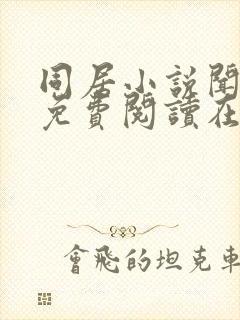 同居小説閱
免費閱讀在
會飛的坦克車